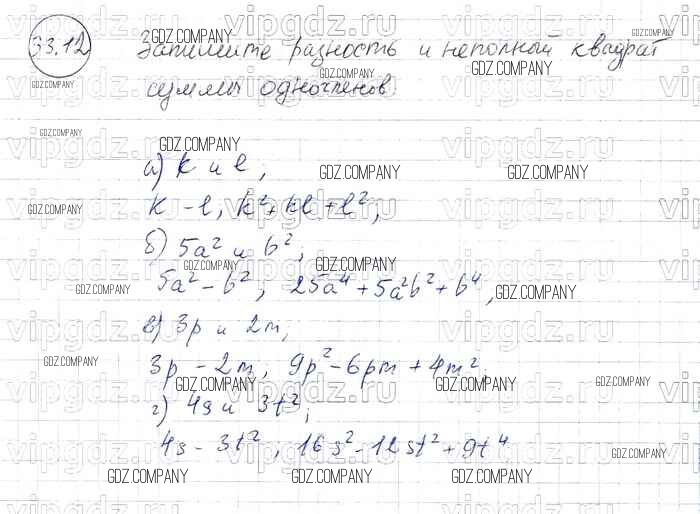 33.12
Запишите разность и неполный квадрат
суммы одночленов.
а) k и l;
k - l, k² + kl + l²;
б) 5a² и b²;
5a² - b²; 25a⁴ + 5a²b² + b⁴,
в) 3p и 2m;
3p - 2m, 9p² - 6pm + 4m²,
г) 4s и 3t²;
4s - 3t², 16s² - 12st² + 9t⁴
GDZ.COMPANY
vipgdz.ru